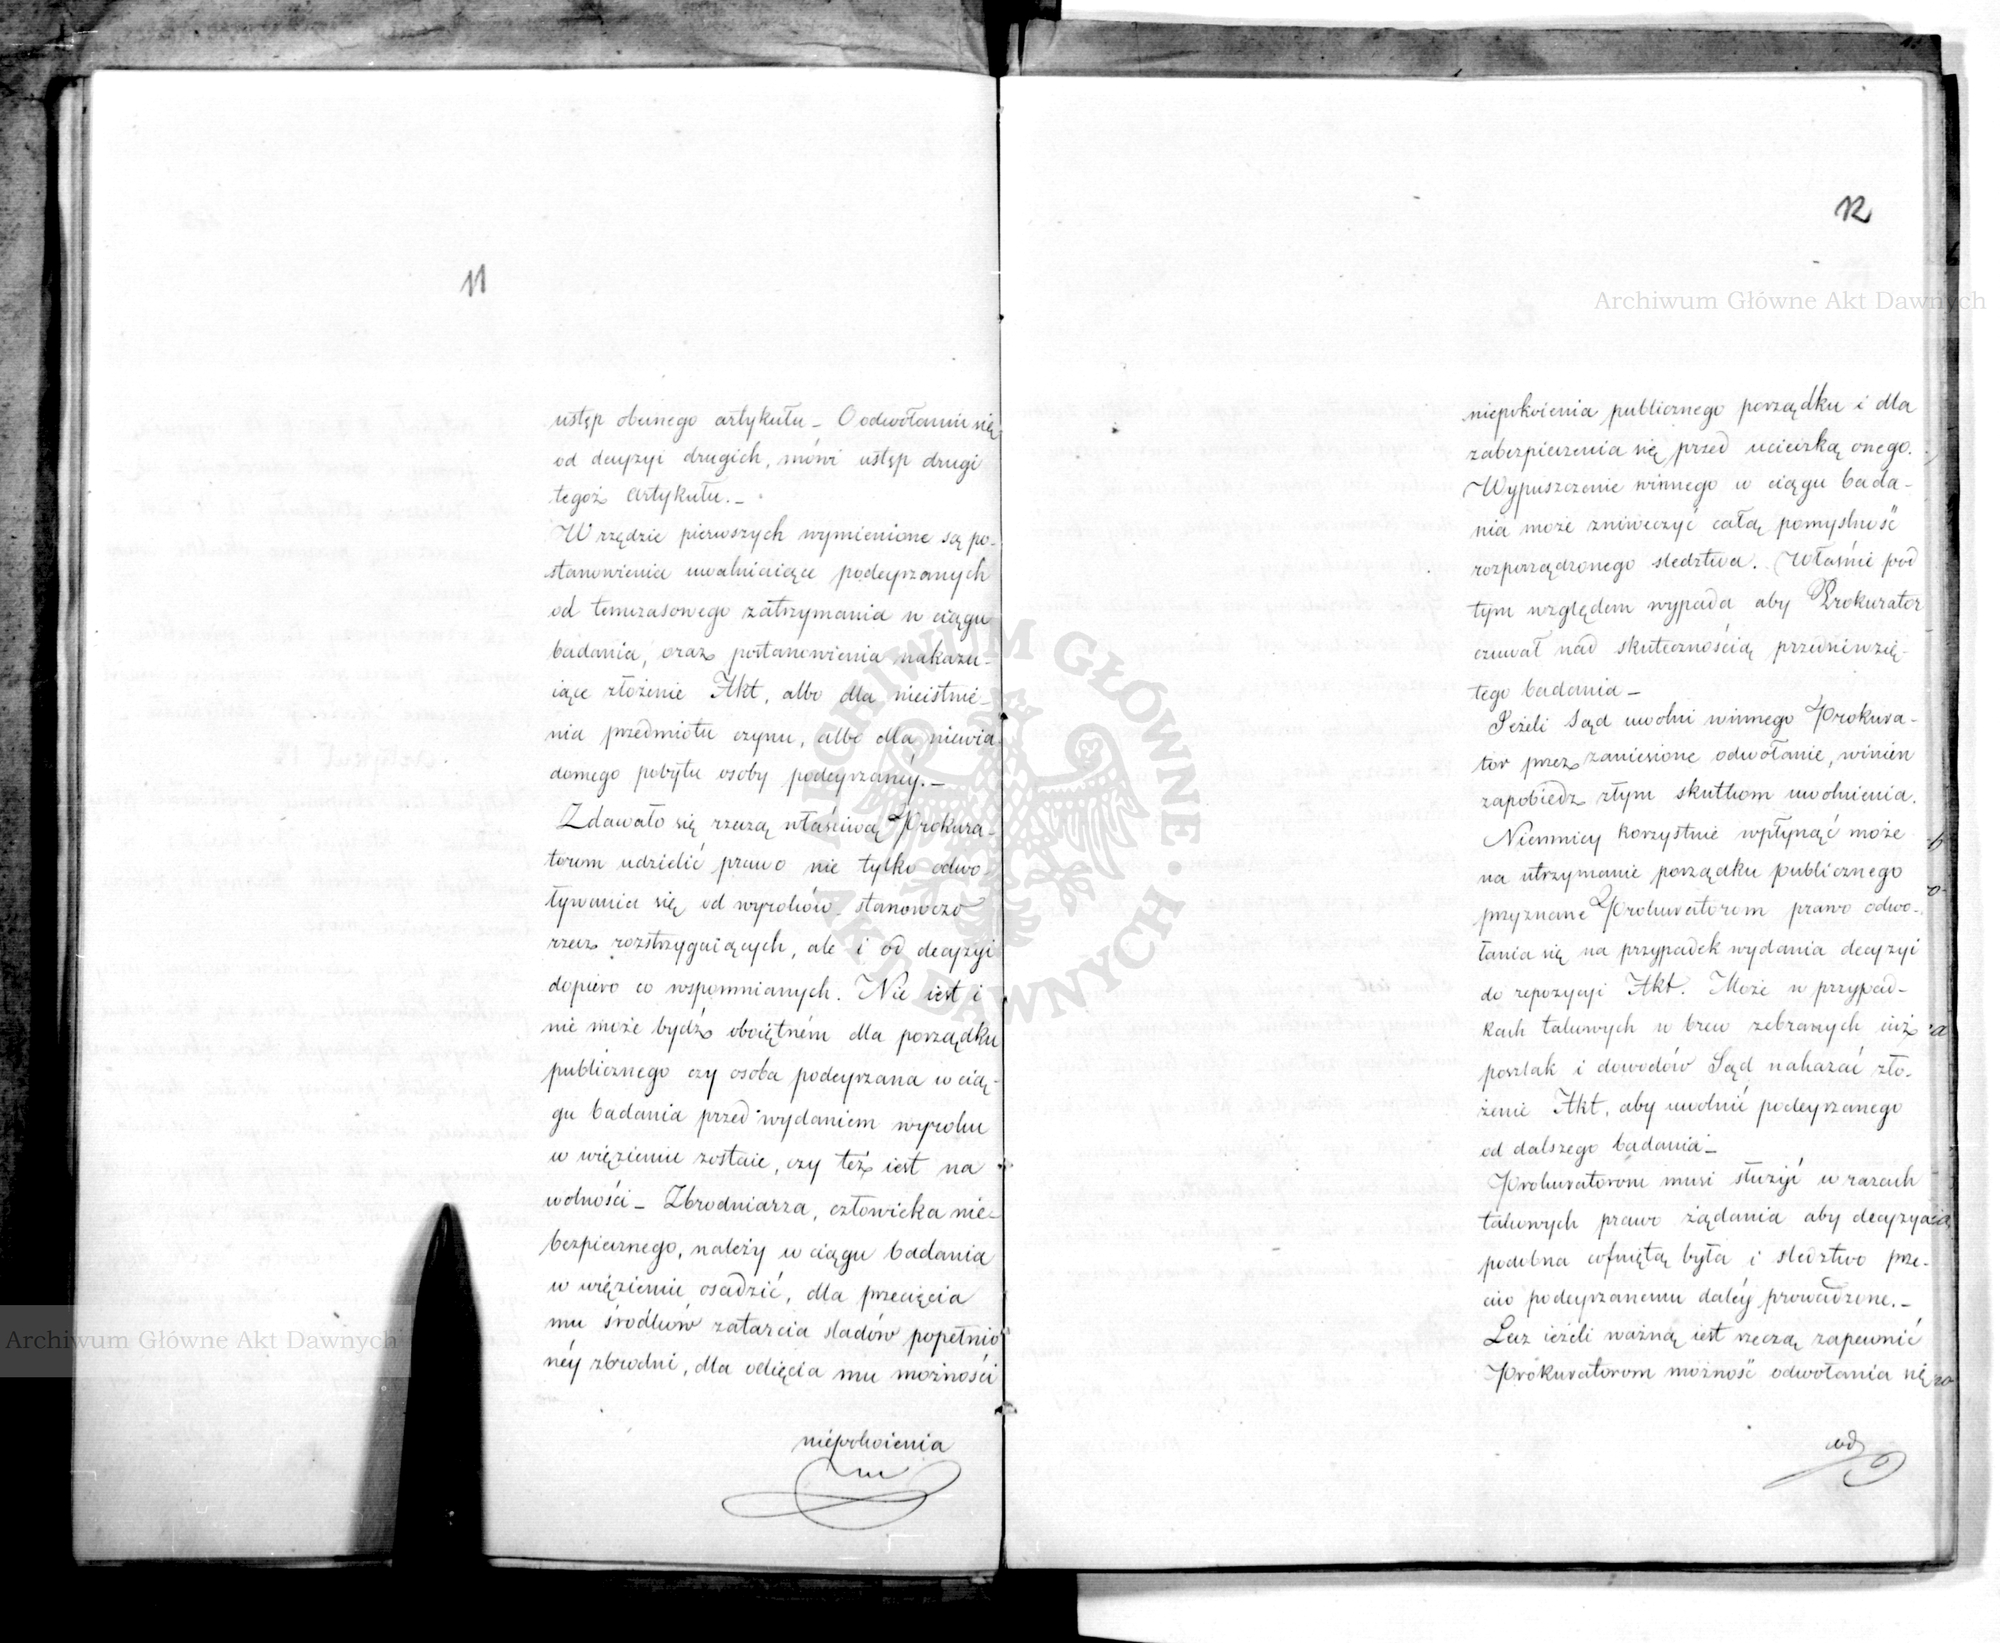 11
ustęp obecnego artykułu – O odwołaniu się
od decyzyi drugich, mówi ustęp drugi
tegoż artykułu. –
W rzędzie pierwszych wymienione są po-
stanowienia uwalniaiące podeyrzanych
od temczasowego zatrzymania w ciągu
badania, oraz postanowienia nakazu-
iące złożenie Akt, albo dla nieistnie-
nia przedmiotu czynu, albo dla niewia-
domego pobytu osoby podeyrzanéy. –
Zdawało się rzeczą właściwą Prokura-
torom udzielić prawo nie tylko odwo-
ływania się od wyroków stanowczo
rzecz rozstrzygaiących, ale i od decyzyi
dopiero co wspomnianych. Nie iest i
nie może bydź oboiętném dla porządku
publicznego czy osoba podeyrzana w cią-
gu badania przed wydaniem wyroku
w więzieniu zostaie, czy też iest na
wolności – Zbrodniarza, człowieka nie-
bezpiecznego, należy w ciągu badania
w więzieniu osadzić, dla przecięcia
mu środków zatarcia sladów popełnio
néy zbrodni, dla odięcia mu możności
niepokoienia
12
niepokoienia publicznego porządku i dla
zabezpieczenia się przed ucieczką onego.
Wypuszczenie winnego w ciągu bada-
nia może zniweczyć całą pomyslność
rozporządzonego sledztwa. Właśnie pod
tym względem wypada aby Prokurator
czuwał nad skutecznością przedniewzię-
tego badania –
Jeżeli Sąd uwolni winnego Prokura-
tor przez zaniesione odwołanie, winien
zapobiedz złym skutkom uwolnienia.
Niemniey korzystnie wpłynąć może
na utrzymanie porządku publicznego
przyznane Prokuratorom prawo odwo-
łania się na przypadek wydania decyzyi
do repozycyi Akt. Może w przypad-
kach takowych w brew zebranych iuż
poszlak i dowodów Sąd nakazać zło-
żenie Akt, aby uwolnić podeyrzanego
od dalszego badania –
Prokuratorom musi służyć w razach
takowych prawo żądania aby decyzya
podobna cofniętą była i sledztwo prze-
ciw podeyrzanemu daléy prowadzone. –
Lecz ieżeli ważną iest rzeczą zapewnić
Prokuratorom możność odwołania się
od
Archiwum Główne Akt Dawnych
Archiwum Główne Akt Dawnych
ARCHIWUM GŁÓWNE AKT DAWNYCH